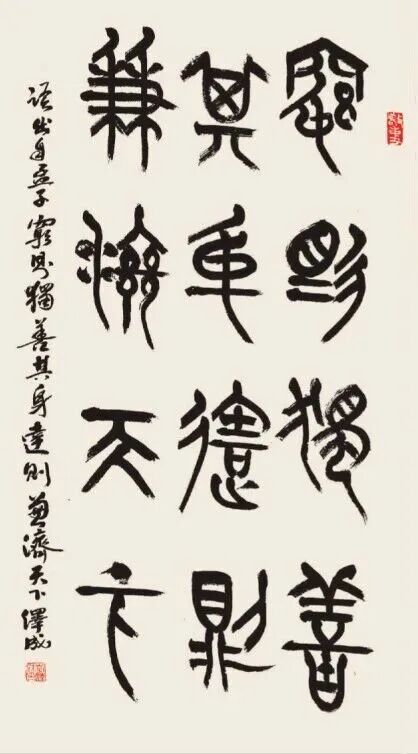 窮則獨善
其身達則
兼濟天下
語出自孟子窮則獨善其身達則兼濟天下繹成